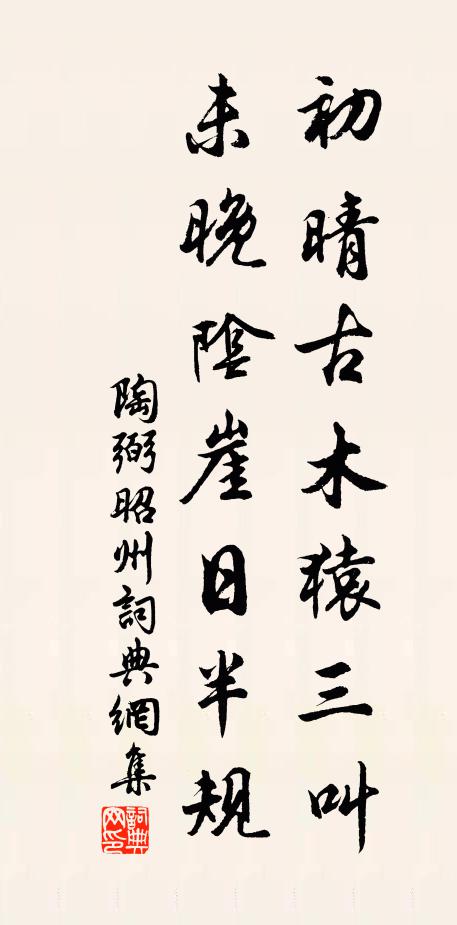 初晴古木猿三叫
未晚陰崖日半規
陶弼昭州詞典網集
詞典網印